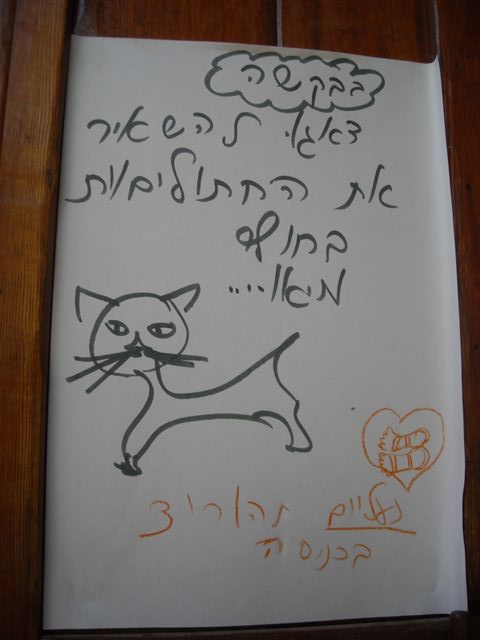 בבקשה
דאגו להשאיר
את החתוליםות
בחוץ
מיאו....
נעליים להוריד
בכניסה